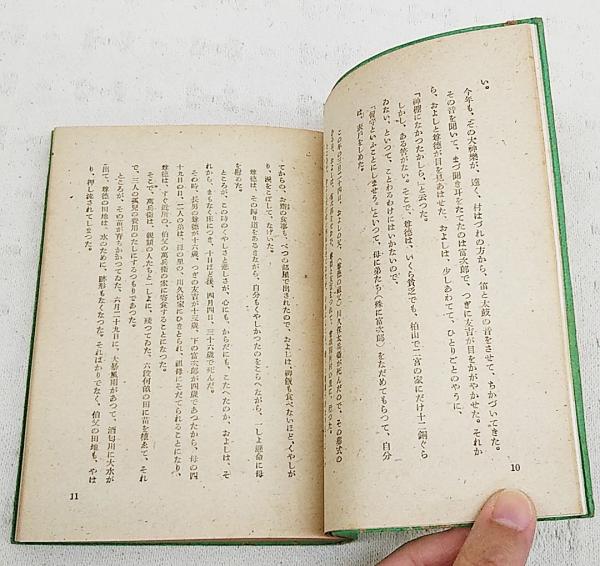 い。
今年も、その大神樂が、遠く、村はづれの方から、笛と太鼓の音をさせて、ちかづいてきた。
その音を聞いて、まづ聞き耳をたてたのは富次郎で、つぎに友吉が目をかがやかせた。それか
ら、およしと尊徳が目を見あはせた。およしは、少しあわてて、ひとりごとのやうに、
「神棚になかつたかしら。」と云つた。
しかし、ある筈がない。そこで、尊徳は、いくら貧乏でも、栢山で二宮の家にだけ十二銅ぐら
ゐない、といつて、ことわるわけにはいかないので、
「留守といふことにしませう。」といつて、母に弟たち（殊に富次郎）をなだめてもらつて、自分
は、表戸をしめた。
10
てからの、お齋の食事も、べつの部屋で出されたので、およしは、御飯も食べないほど、くやしが
り、涙をこぼして、なげいた。
尊徳は、その歸り道をあるきながら、自分もくやしかつたのをこらへながら、一しよ懸命に母
を慰めた。
ところが、このときのくやしさと悲しさが、心にも、からだにも、こたへたのか、およしは、そ
れから、まもなく床につき、十日ほど後、四月四日、三十六歳で死んだ。
その時、長男の尊徳が十六歳、つぎの友吉が十三歳、下の富次郎が四歳であつたから、母の四
十九日の日、二人の弟は、母の里の、川久保家にひきとられ、祖母にそだてられることになり、
尊徳は、すぐ近所の、伯父の萬兵衛の家に寄食することになつた。
そこで、萬兵衛は、親類の人たちと一しよに、殘つてゐた、六段何畝の田に苗を植ゑて、それ
で、三人の孤兒の費用のたしにするつもりであつた。
ところが、その苗が育ちかかつてゐた、六月二十九日に、大暴風雨があつて、酒匂川に大水が
出て、尊徳の田地は、水のために、跡形もなくなつた。そればかりでなく、伯父の田地も、やは
り、押し流されてしまつた。
11